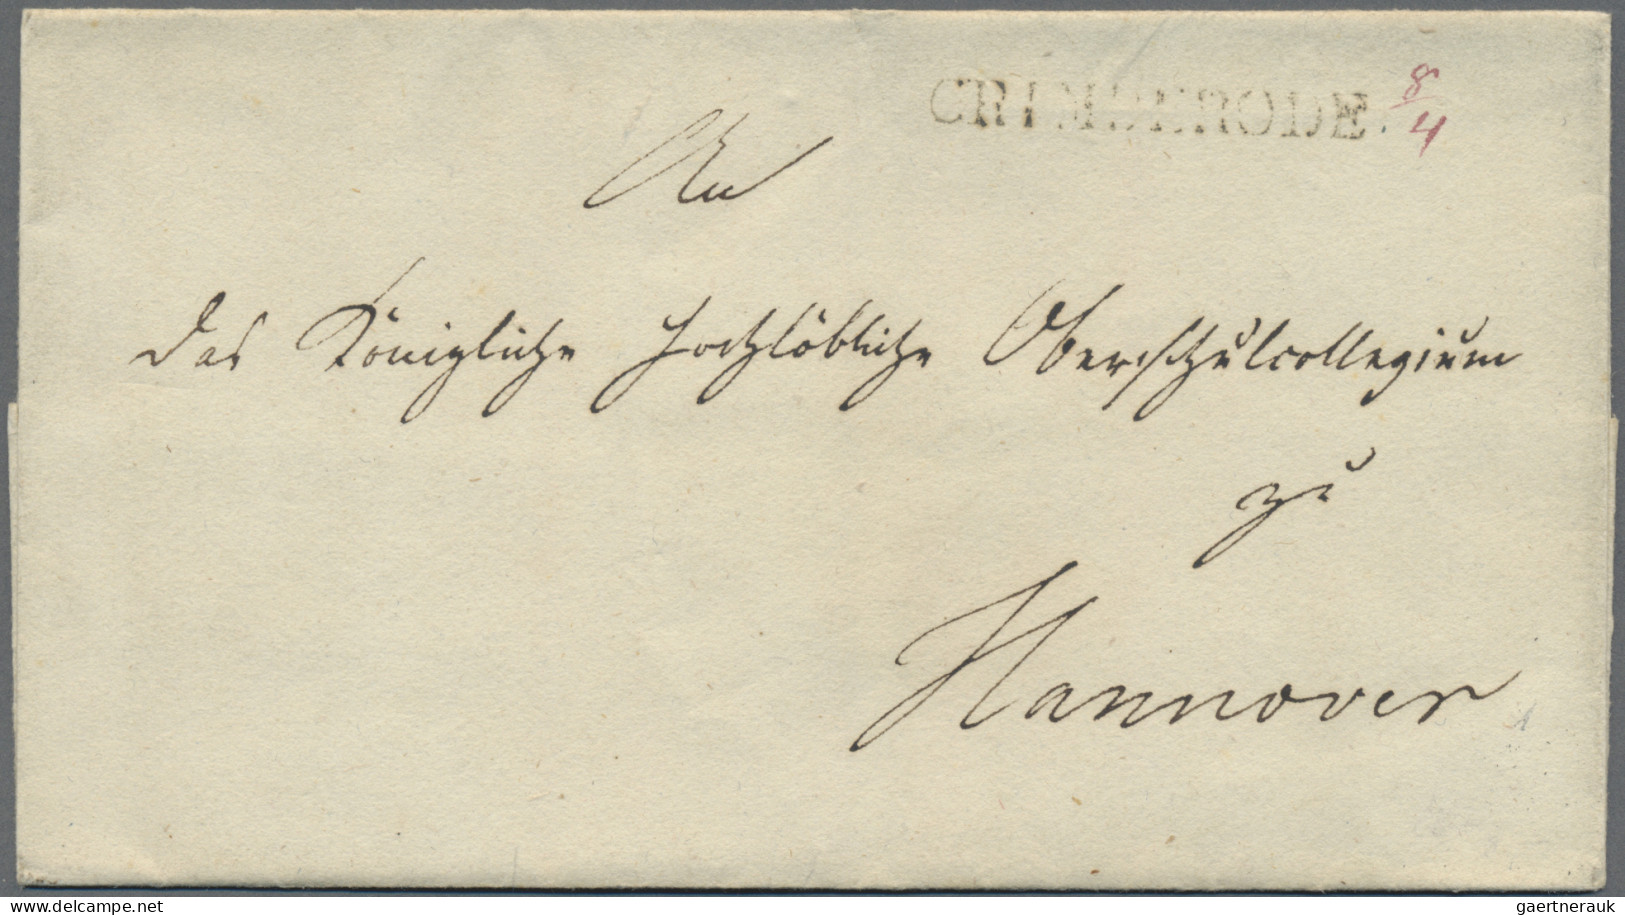 CRIMDERODE 8/4
An
das Königliche Hochlöbliche Oberschulcollegium
zu
Hannover
delcampe.net
gaertnerauk